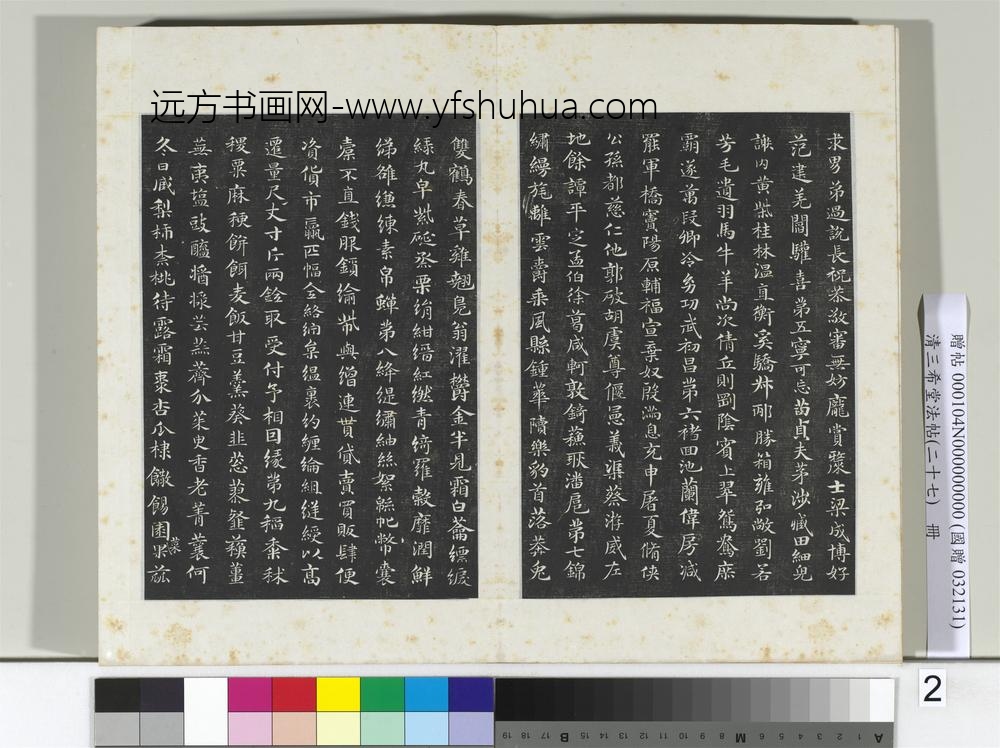 远方书画网-www.yfshuhua.com
求男弟過說長祝恭敬審無妨龐賞䝠士梁成博好
范建羌閻驩喜第五寧可忘苗貞夫茅涉臧田細兒
謝內黃柴桂林溫直衡奚驕邴勝箱雍弘敞劉若
芳毛遺羽馬牛羊尚次倩丘則劉陰賓上翠鴛鴦庶
霸遂萬段卿泠幼功武初昌第六褚田池蘭偉房減
罷軍橋竇陽原輔福宣棄奴殷滿息充申屠夏脩俠
公孫都慈仁他郭破胡虞尊偃憲義渠蔡游威左
地餘譚平定孟伯徐葛咸軻敦錡蘇耿潘扈第七錦
繡縵旄離雲爵乘風縣鍾華隤樂豹首落莽兔
雙鶴春草雞翹鳧翁濯鬱金半見霜白䔧縹綟
綠丸皁紫砭烝栗絹紺縉紅繎青綺羅縠靡潤鮮
綈雒縑練素帛蟬第八絳緹繡紬絲絮緜帊幣囊
橐不直錢服鎖綸帋與繒連貰貸賣買販肆便
資貨市贏匹幅全絡納枲縕裹約纏綸組縫綬以高
遷量尺丈寸斤兩銓取受付予相因緣第九稻黍秫
稷粟麻秔餅餌麥飯甘豆羹葵韭蔥蓼韰蘇薑
蕪荑塩豉醯醬漿芸蒜薺介茱臾香老菁蘘何
冬日臧梨柿柰桃待露霜棗杏瓜棣饊餳園菓
2
贈帖 000104N000000000 (國贈 032131)
清三希堂法帖(二十七) 冊
A 1 2 3 4 5 6 M 8 9 10 11 12 13 14 15 B 17 18 19